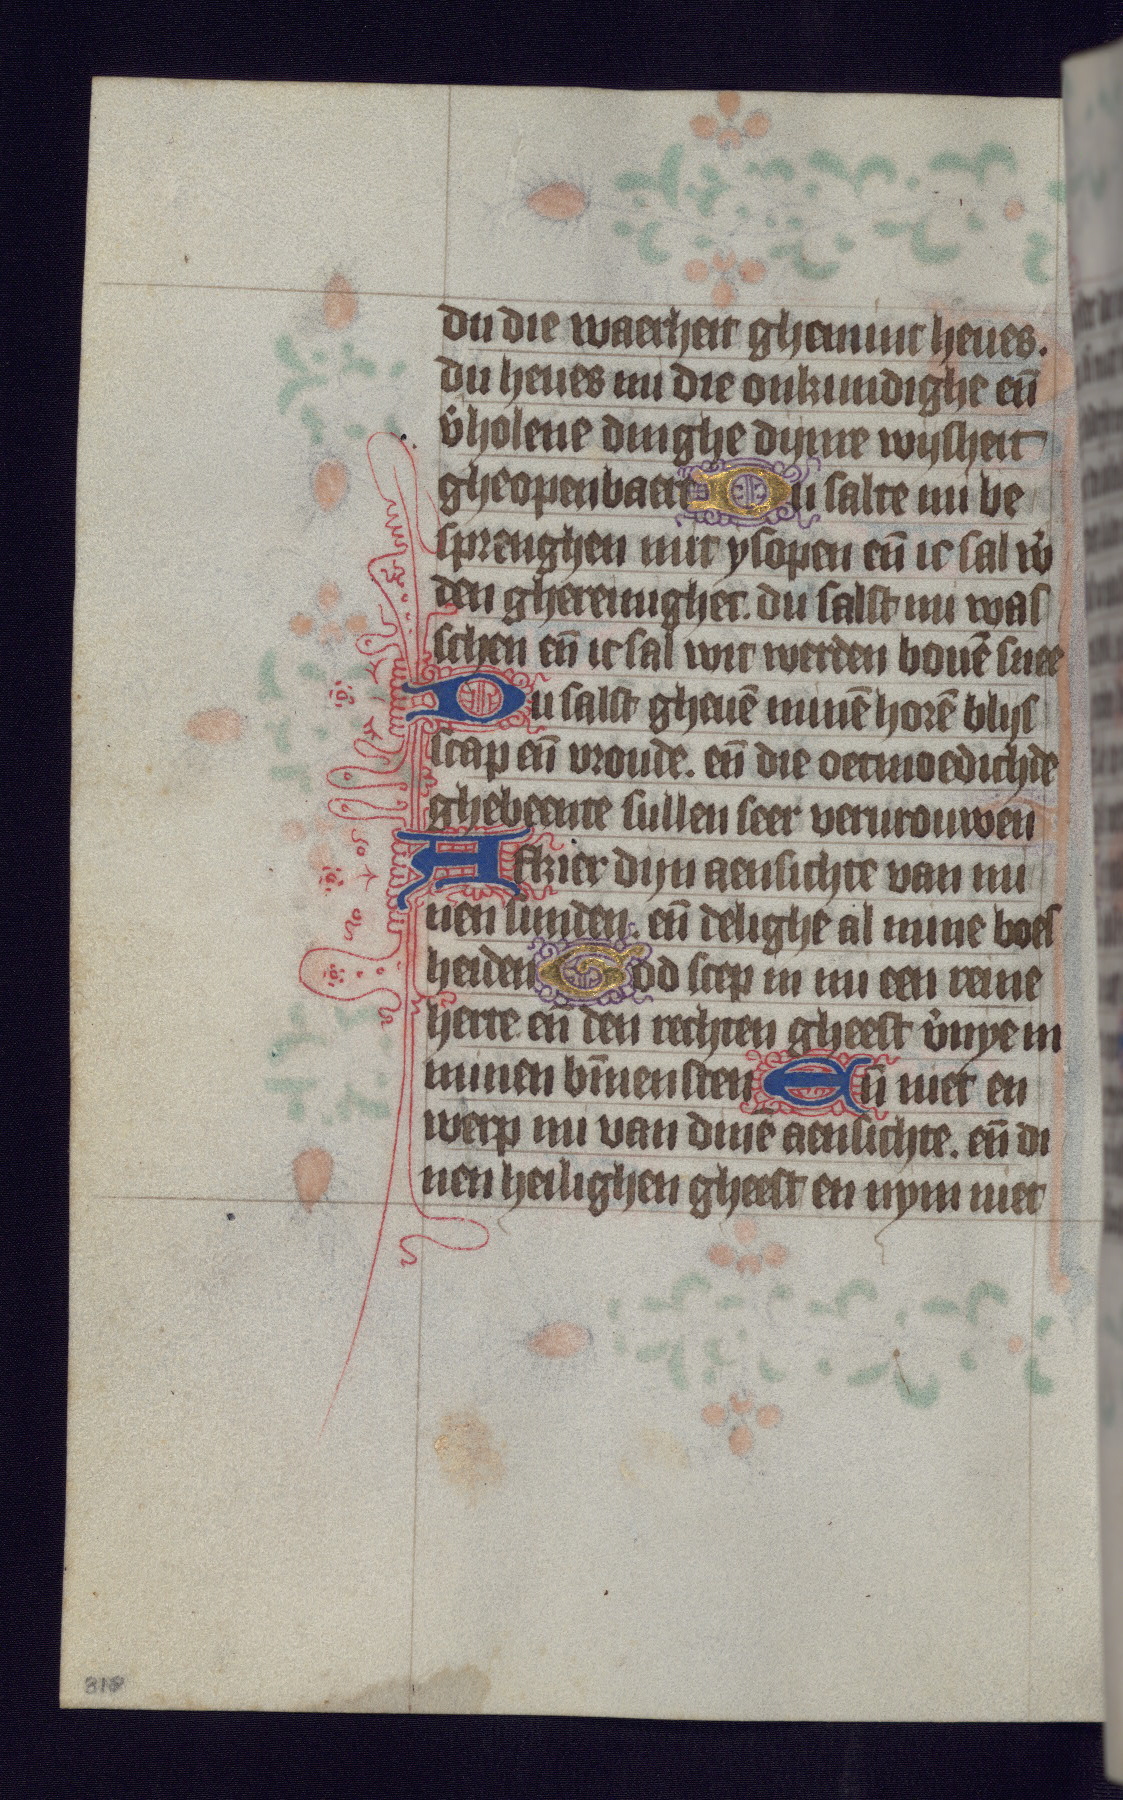 du die waerheit ghemint heues.
du heues mi die onkundighe en̄
v̉holene dinghe dijnre wijsheit
gheopenbaert Du salte mi be
sprenghen mit ysopen en̄ ic sal w̉
den ghereinighet. du salst mi was
schen en̄ ic sal wit werden bouē snee
Du salst gheuē minē horē blijs
scap en̄ vroude. en̄ die oetmoedichde
ghebeente sullen seer verurouwen
Afkier dijn aensichte van mi
nen sunden. en̄ delighe al mine boes
heiden God scep in mi een reine
herte en̄ den rechten gheest v̉nye in
minen bīnensten En̄ niet en
werp mi van dinē aensichte. en̄ di
nen heilighen gheest en nym niet
318